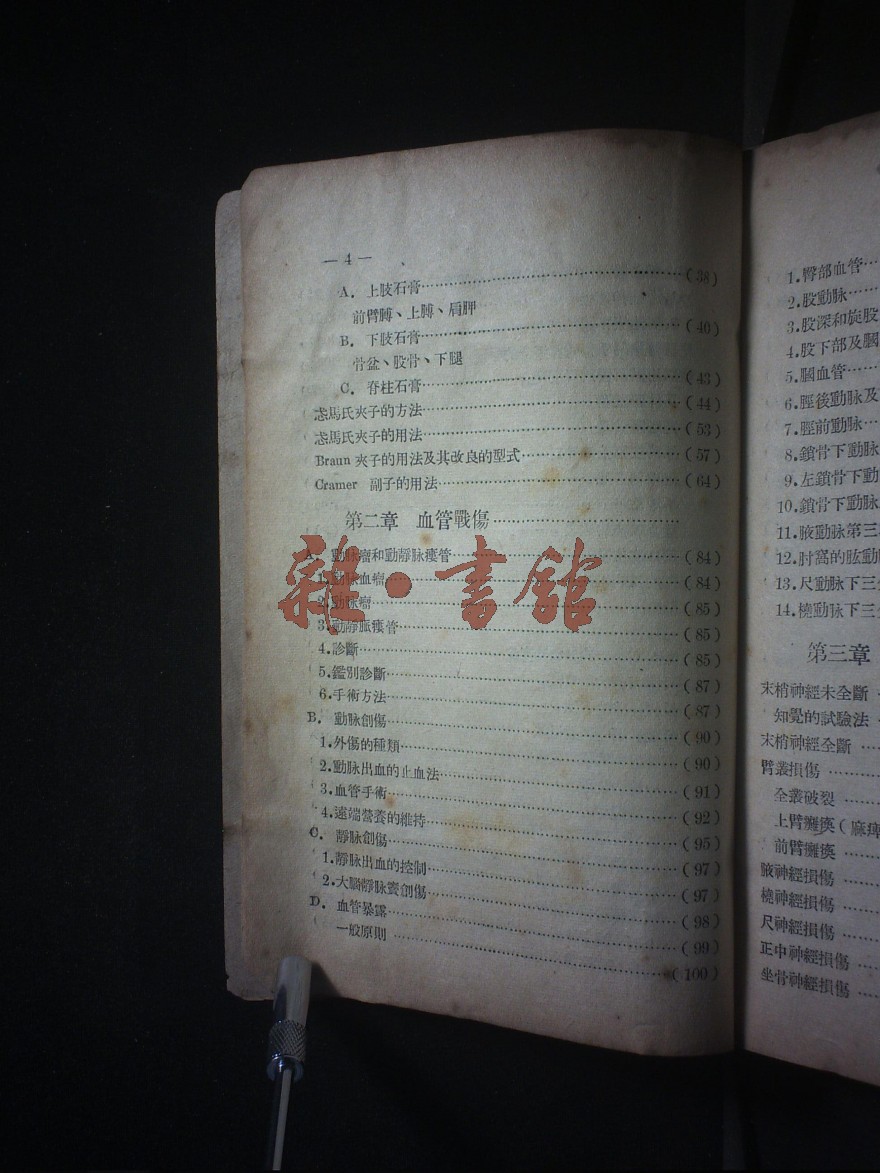 —4—
A. 上肢石膏……(38)
前臂膊、上膊、肩胛
B. 下肢石膏……(40)
骨盆、股骨、下腿
C. 脊柱石膏……(43)
馬氏夾子的方法……(44)
馬氏夾子的用法……(53)
Braun 夾子的用法及其改良的型式……(57)
Cramer 副子的用法……(64)
第二章 血管戰傷……
A. 動脉瘤和動靜脉瘻管……(84)
1.動脉血瘤……(84)
2.動脉瘤……(85)
3.動靜脈瘻管……(85)
4.診斷……(85)
5.鑑別診斷……(87)
6.手術方法……(87)
B. 動脉創傷……(90)
1.外傷的種類……(90)
2.動脉出血的止血法……(91)
3.血管手術……(92)
4.遠端營養的維持……(95)
C. 靜脉創傷……(97)
1.靜脉出血的控制……(97)
2.大腦靜脉竇創傷……(98)
D. 血管暴露……(99)
一般原則……(100)
雜·書館
1.臀部血管……
2.股動脉……
3.股深和旋股
4.股下部及膕
5.膕血管……
6.脛後動脉及
7.脛前動脉…
8.鎖骨下動脉
9.左鎖骨下動
10.鎖骨下動脉
11.腋動脉第三
12.肘窩的肱動
13.尺動脉下三
14.橈動脉下三
第三章
末梢神經未全斷…
知覺的試驗法…
末梢神經全斷……
臂叢損傷……
全叢破裂……
上臂癱瘓(麻痺
前臂癱瘓……
腋神經損傷……
橈神經損傷……
尺神經損傷……
正中神經損傷……
坐骨神經損傷……